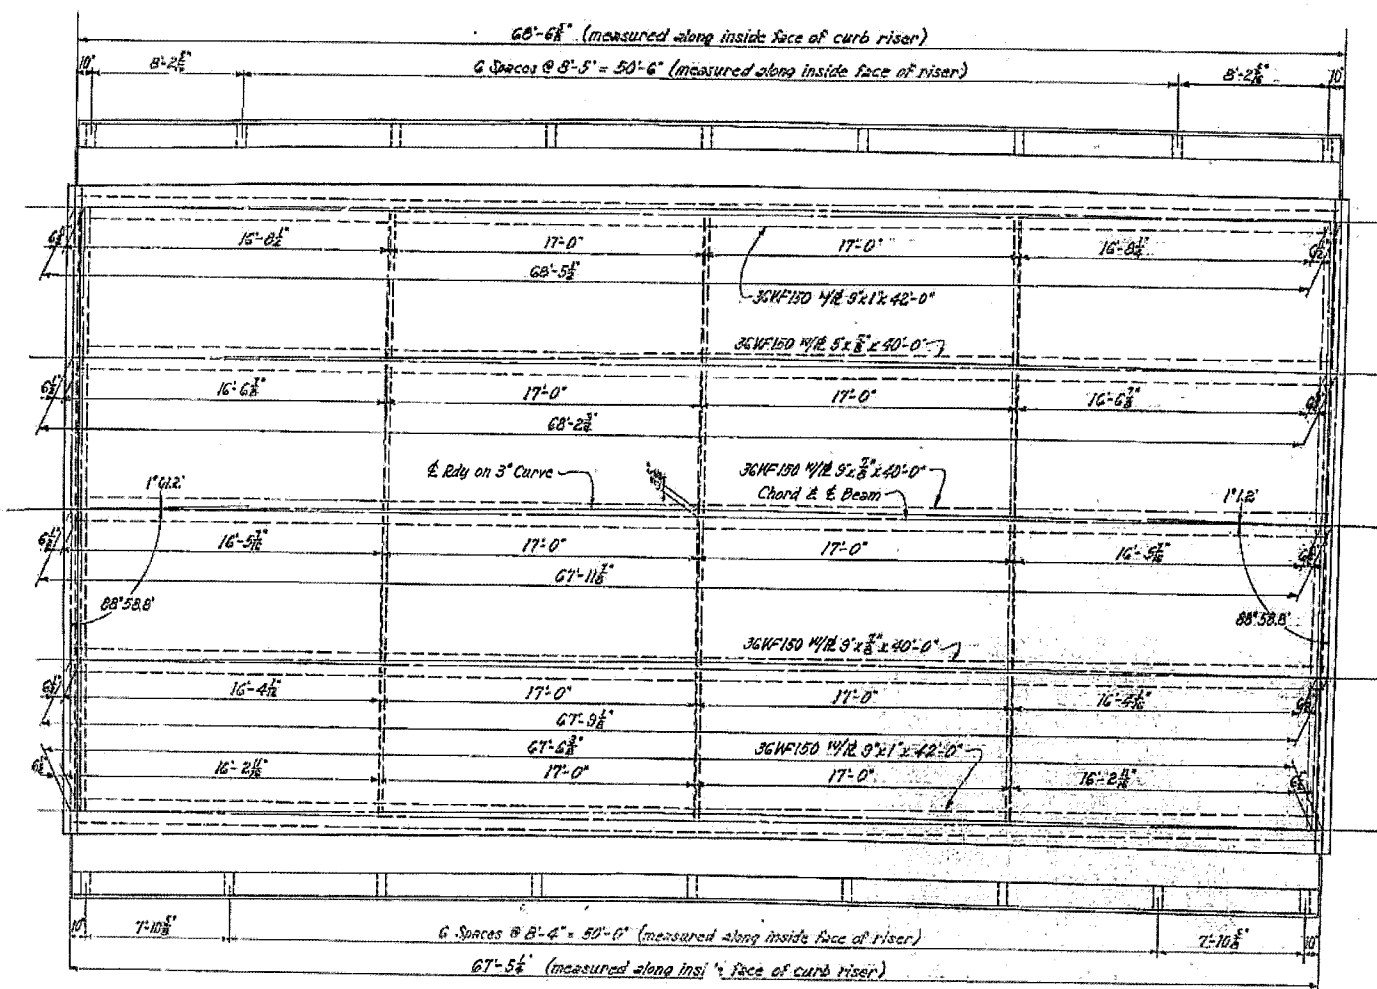 68'-6⅝" (measured along inside face of curb riser)
10" 8'-2 5/16" 6 Spaces @ 8'-5" = 50'-6" (measured along inside face of riser) 8'-2 5/16" 10"
16'-8½" 17'-0" 17'-0" 16'-8½"
68'-5½"
36WF150 W/PL 9"x1"x42'-0"
36WF150 W/PL 9"x⅞"x40'-0"
6½" 16'-6⅞" 17'-0" 17'-0" 16'-6⅞"
68'-2¾"
℄ Rdy on 3° Curve 36WF150 W/PL 9"x⅞"x40'-0"
1°01.2' Chord & ℄ Beam 1°1.2'
6½" 16'-5 7/16" 17'-0" 17'-0" 16'-5 7/16"
67'-11⅞"
88°58.8' 88°58.8'
36WF150 W/PL 9"x⅞"x40'-0"
6½" 16'-4 1/16" 17'-0" 17'-0" 16'-4 1/16"
67'-9⅛"
67'-6⅜" 36WF150 W/PL 9"x1"x42'-0"
6½" 16'-2 11/16" 17'-0" 17'-0" 16'-2 11/16" 6½"
10" 7'-10⅝" 6 Spaces @ 8'-4" = 50'-0" (measured along inside face of riser) 7'-10⅝" 10"
67'-5¼" (measured along insi face of curb riser)